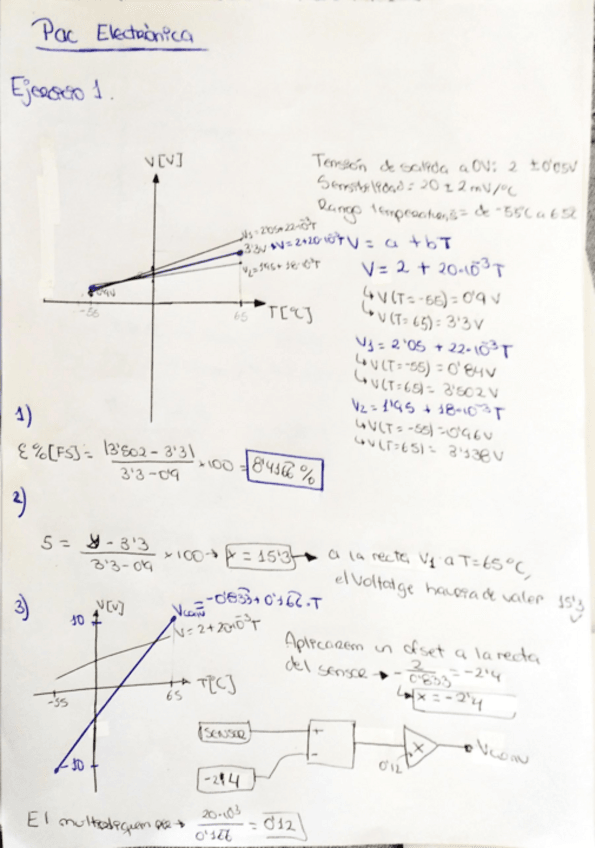 Pac Electrònica
Ejercicio 1.
V[V]
Tensión de salida a 0V: 2 ± 0'05V
Sensibilidad = 20 ± 2 mV/°C
Rango temperaturas = de -55C a 65C
V1 = 2'05+22·10⁻³T
3'3V V = 2+20·10⁻³T
V2 = 1'95 + 18·10⁻³T
0'9V
-55
65
T[°C]
V = a + bT
V = 2 + 20·10⁻³T
↳ V(T=-55) = 0'9V
↳ V(T=65) = 3'3V
V1 = 2'05 + 22·10⁻³T
↳ V(T=-55) = 0'84V
↳ V(T=65) = 3'502V
V2 = 1'95 + 18·10⁻³T
↳ V(T=-55) = 0'96V
↳ V(T=65) = 3'138V
1)
ε%[FS] = |3'502 - 3'3| / 3'3 - 0'9 × 100 = 8'4166 %
2)
5 = - 3'3 / 3'3 - 0'9 × 100 → x = 15'3 → a la recta V1 a T=65°C,
el voltatge hauria de valer 15'3
3)
V[V]
10
Vconv = -0'833+0'166·T
V = 2+20·10⁻³T
T[C]
-55
65
-10
Aplicarem un ofset a la recta
del sensor → - 2 / 0'833 = -2'4
↳ x = -2'4
SENSOR
+
-
-2'4
X
0'12
Vconv
El → 20·10³ / 0'166 = 0'12